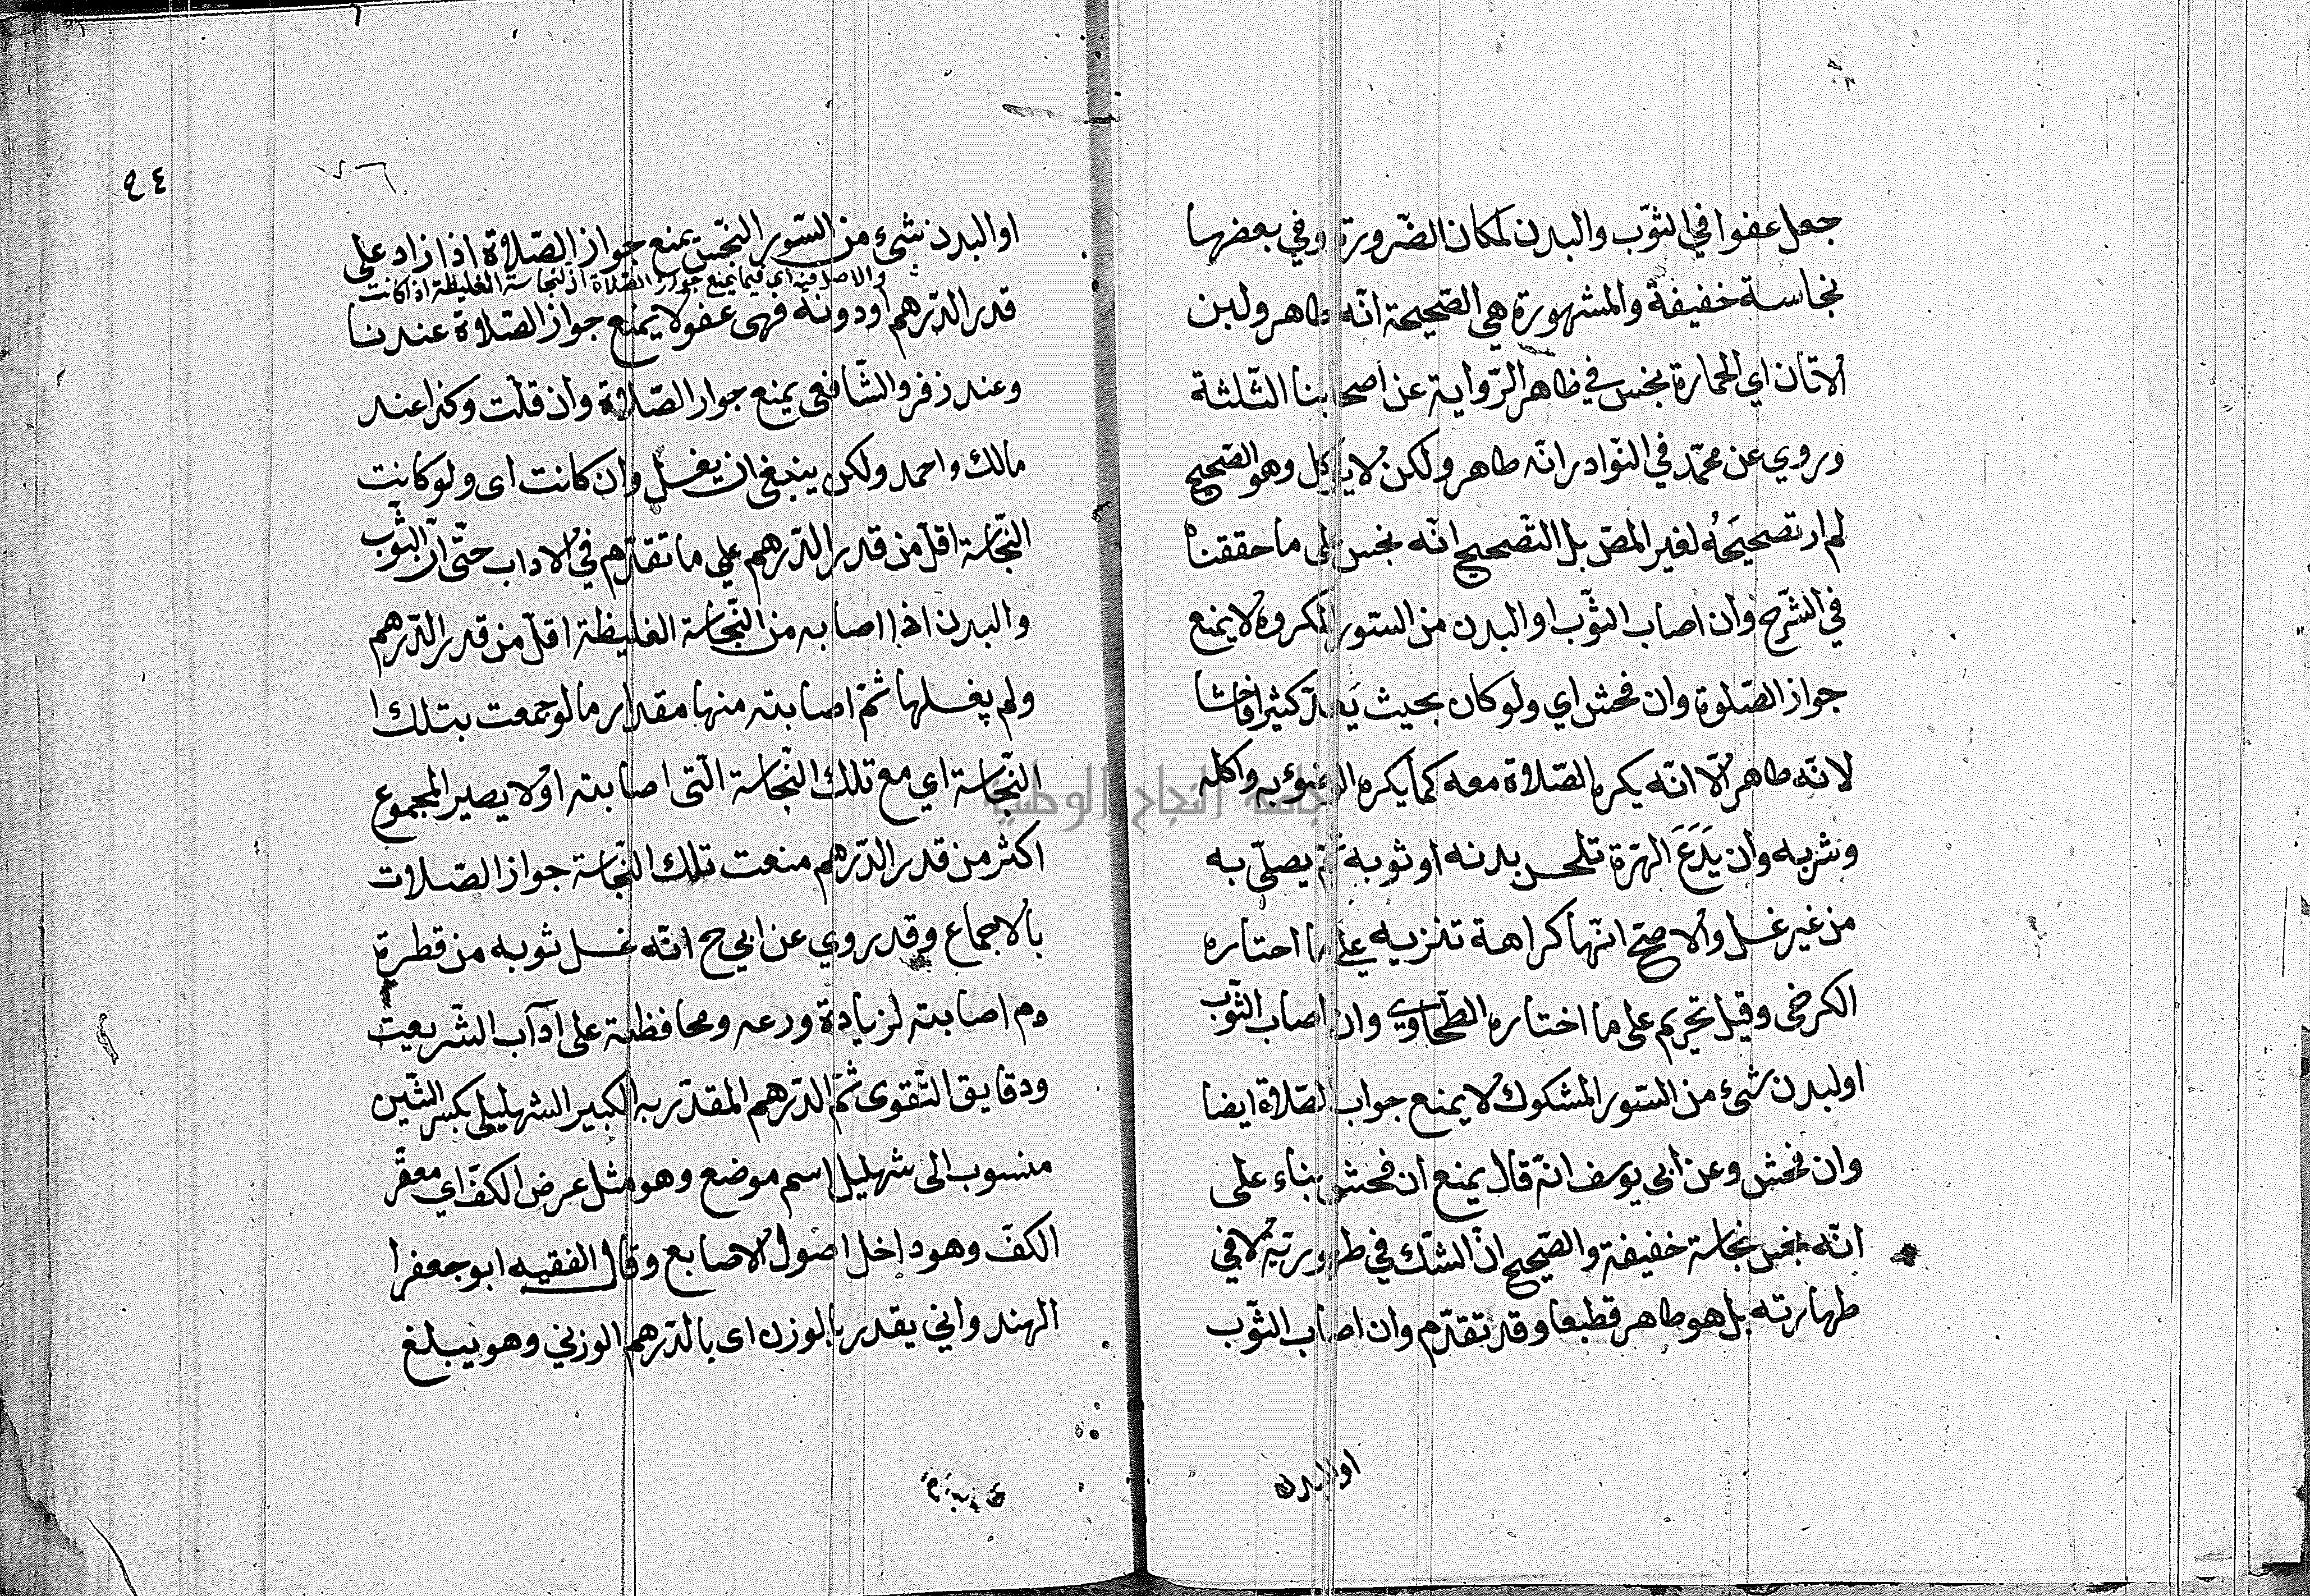 جعل عفوا في الثوّب والبدن لمكان الضّرورة وفي بعضها
نجاسة خفيفة والمشهورة هي الصّحيحة انّه طاهر ولبن
الاتان اي الحمارة نجس في ظاهر الرّواية عن اصحابنا الثّلثة
وروي عن محمّد في النّوادر انّه طاهر ولكن لا يؤكل وهو الصّحيح
لم ار تصحيحَهُ لغير المصّ بل التّصحيح انّه نجس على ما حققناه
في الشّرح وان اصاب الثّوب او البدن من السّور المكروه لا يمنع
جواز الصّلوة وان فحش اي ولو كان بحيث يَعدّ كثيرا فاحشا
لانّه طاهر الّا انّه يكره الصّلاة معه كما يكره الوضوء به واكله
وشربه وان يَدَعَ الهرّة تلحس بدنه او ثوبه ثم يصلّي به
من غير غسل والاصحّ انّها كراهة تنزيه على ما احتاره
الكرخى وقيل تحريم على ما اختاره الطّحاوي وان اصاب الثّوب
اولبدن شئ من السّور المشكوك لا يمنع جواب الصّلاة ايضا
وان فحش وعن ابي يوسف انّه قال يمنع ان فحش بناء على
انّه نجس نجاسة خفيفة والصّحيح انّ الشّك في طهوريّته لا في
طهارته بل هو طاهر قطعا وقد تقدّم وان اصاب الثّوب
او البدن
٩٤
٧٦
او البدن شئ من السّور النّجس يمنع جواز الصّلاة اذا زاد على
والاصل فيه اي فيما يمنع جواز الصّلاة ان النجاسة الغليظة اذا كانت
قدر الدّرهم او دونه فهى عفو لا يمنع جواز الصّلاة عندنا
وعند زفر والشّافعى يمنع جواز الصّلاة وان قلّت وكذا عند
مالك واحمد ولكن ينبغى ان يغسل وان كانت اى ولو كانت
النّجاسة اقلّ من قدر الدّرهم على ما تقدّم في الاداب حتّى انّ الثّوب
والبدن اذا اصابه من النّجاسة الغليظة اقلّ من قدر الدّرهم
ولم يغسلها ثمّ اصابته منها مقدار ما لو جمعت بتلك ا
النّجاسة اي مع تلك النّجاسة الّتى اصابته اولا يصير المجموع
اكثر من قدر الدّرهم منعت تلك النّجاسة جواز الصّلات
بالاجماع وقد روي عن ابي ح انّه غسل ثوبه من قطرة
دم اصابته لزيادة ورعه ومحافظة على ادآب الشّريعت
ودقايق التّقوى ثمّ الدّرهم المقدّر به الكبير الشهليلي بكسر الشّين
منسوب الى شهليل اسم موضع وهو مثل عرض الكفّ اي مقعّر
الكفّ وهو داخل اصول الاصابع وقال الفقيه ابو جعفر ا
الهندواني يقدر بالوزن اى بالدّرهم الوزني وهو يبلغ